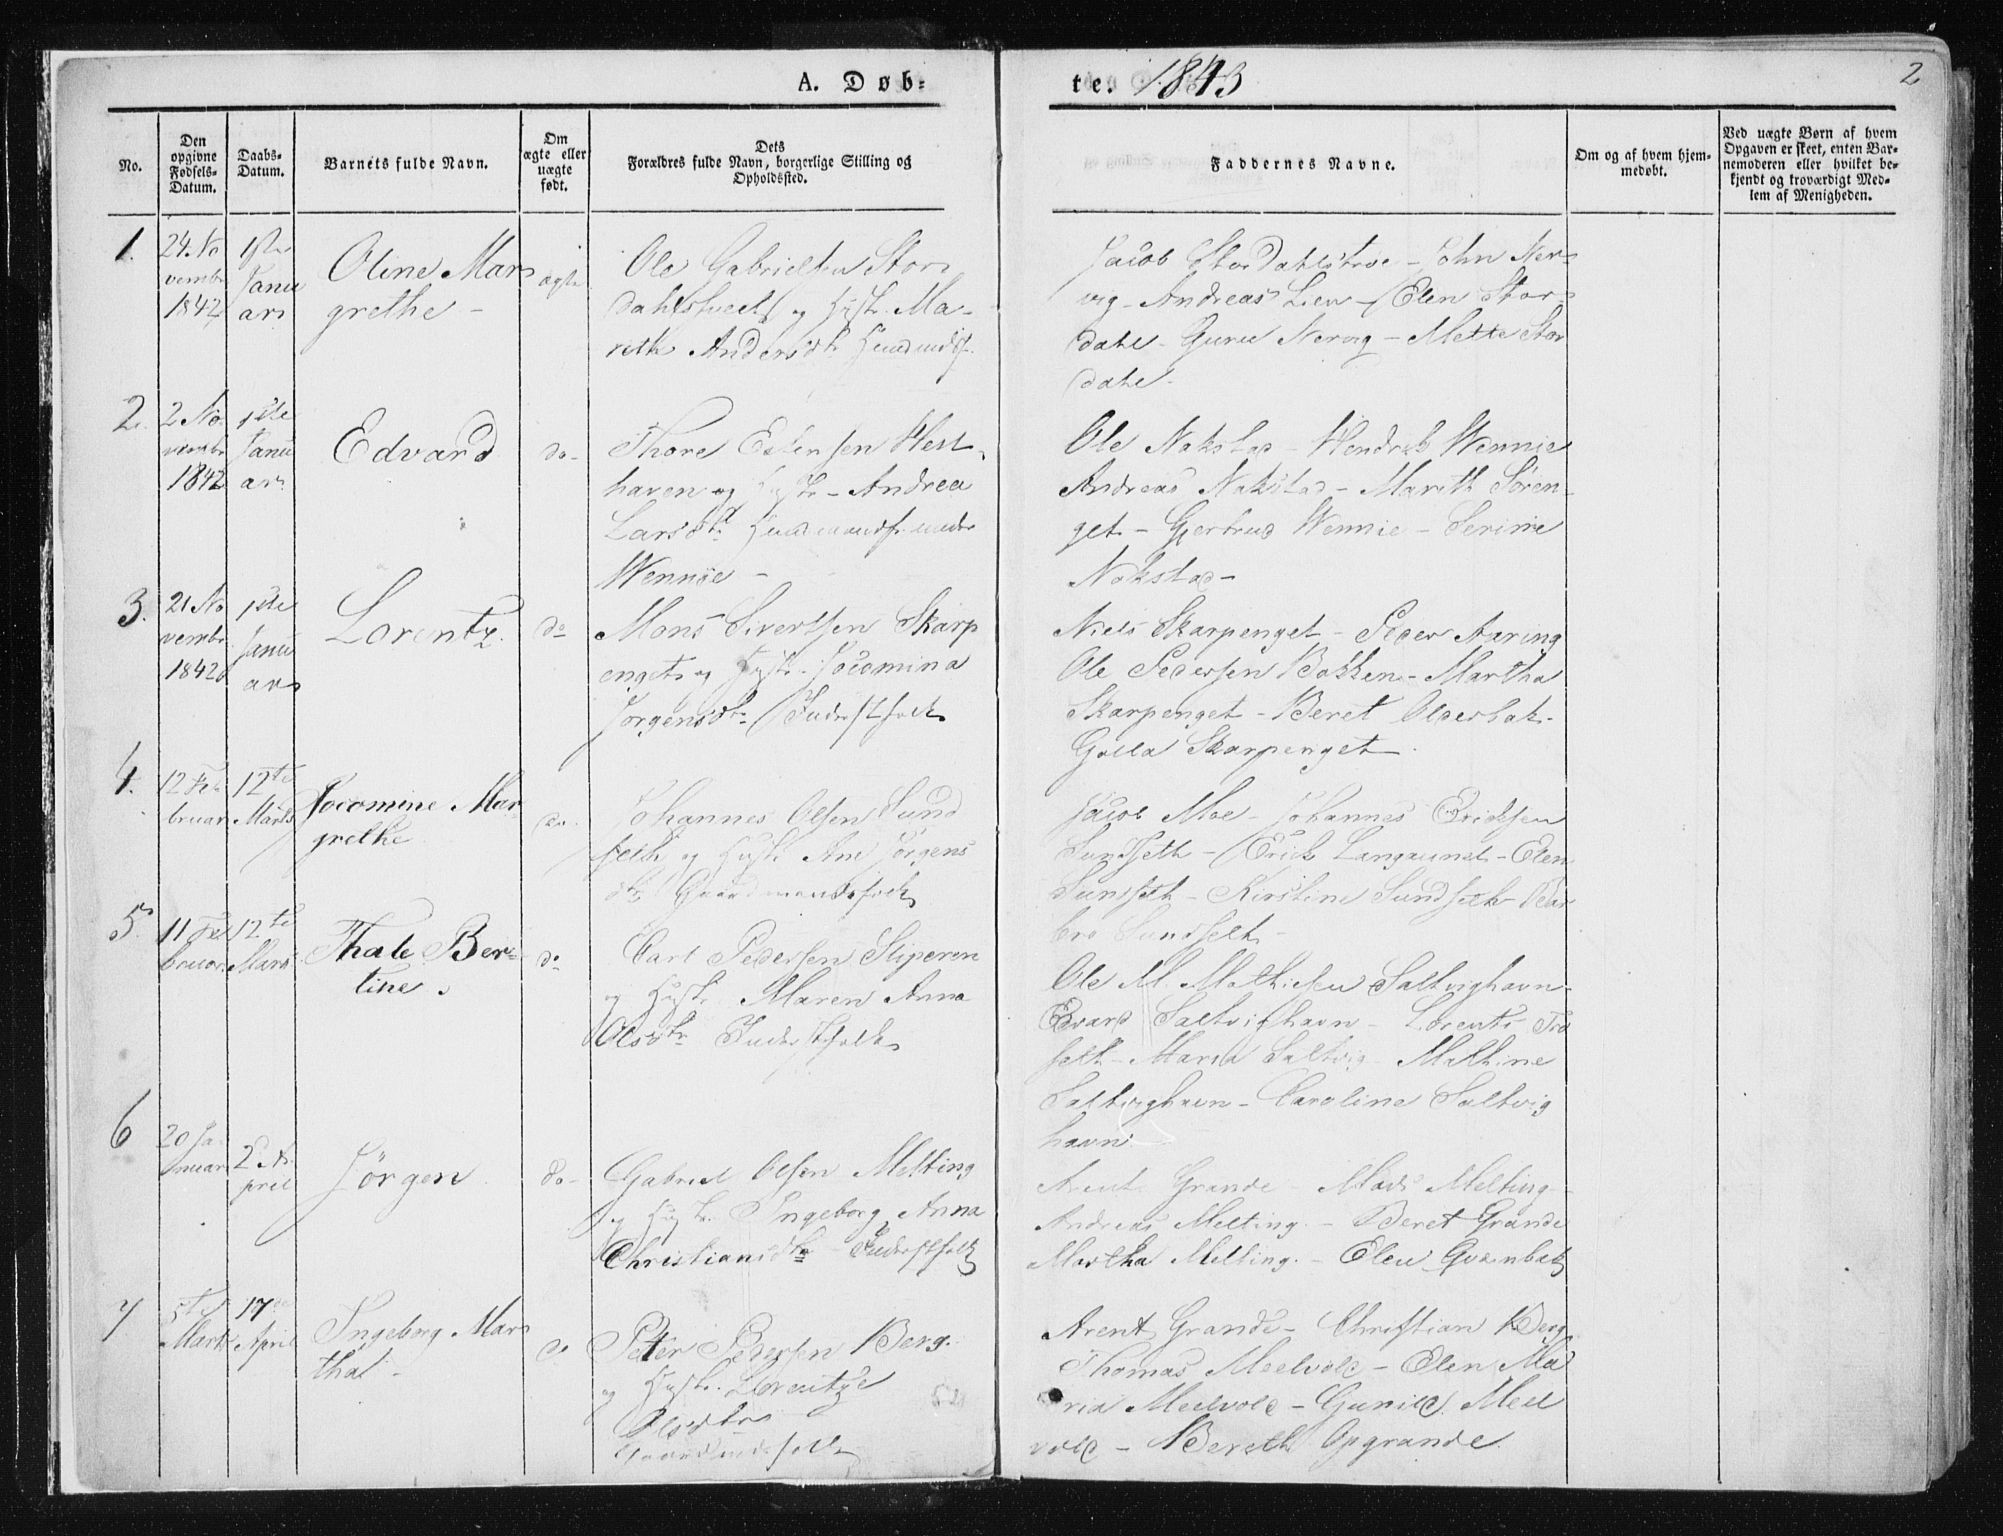 A. Døb-
te. 1843
2
No.
Den
opgivne
Fødsels-
Datum.
Daabs-
Datum.
Barnets fulde Navn.
Om
ægte eller
uægte
født.
Dets
Forældres fulde Navn, borgerlige Stilling og
Opholdssted.
Faddernes Navne.
Om og af hvem hjem-
medøbt.
Ved uægte Børn af hvem
Opgaven er skeet, enten Bar-
nemoderen eller hvilket be-
kjendt og troværdigt Med-
lem af Menigheden.
1.
24. No
vembr
1842
1ste
Janu
ar
Oline Mar
grethe -
ægte
Ole Gabrielsen Stor
dahls og Hustr. Ma-
reth Andersdtr
Jacob Stordahlstrøe - John Ner-
vig - Andreas Lien - Elen Stor-
dahl - Guru Nervig - Mette Stor
dahl -
2.
2 No
vembr
1842
1ste
Janu
ar
Edvard
do-
Thore Estensen West
haven og Hustr - Andrea
Larsdtr Huusmandsf. under
Wennie -
Ole Nokstad - Hendrik Wennie
Andreas Nokstad - Marith Søren-
get - Gjertrud Wennie - Serine
Nokstad -
3.
21 No
vembr
1842
1ste
Janu
ar
Lorentz.
do
Mons Sivertsen Skarp
enget og Hustr. Jocomina
Jørgensdtr Inderstfolk
Niels Skarpenget - Peder Aaring
Ole Pedersen Bakken - Martha
Skarpenget - Beret Olderbak-
Golla Skarpenget
4.
12 Fe
bruar
12te
Marts
Jocomine Mar
grethe
do.
Johannes Olsen Sund
seth og Hustr Ane Jørgens
dtr Gaardmandsfolk
Jacob Moe - Johannes Ericksen
Sundseth - Erick Langaunet - Elen
Sundseth - Kirstine Sundseth - Bar
bro Sundseth -
5.
11 Fe
bruar
12te
Marts
Thale Ber-
tine.
do
Carl Pedersen Sliperen
og Hustr. Maren Anna
Olsdtr Inderstfolk
Ole M. Mathisen Saltvighavn-
Evard Saltvighavn - Lorents Tro
seth - Maria Saltvig - Mathine
Saltvighavn - Caroline Saltvig
havn.
6
20 Ja
nuar
2 A
pril
Jørgen
do-
Gabriel Olsen Melting
og Hustr. Ingeborg Anna
Christiansdtr Inderstfolk
Arent Grande - Mads Melting -
Andreas Melting. - Beret Grande
Martha Melting. - Elen
7
5te
Marts
17de
April
Ingeborg Mar
tha -
do
Peter Pedersen Berg.
og Hustr. Lorentze
Olsdtr
Gaardmandsfolk
Arent Grande - Christian Berg
Thomas Meelvold - Elen Ma
ria Meelvold - Gunild Meel
vold - Bereth Opgrande.